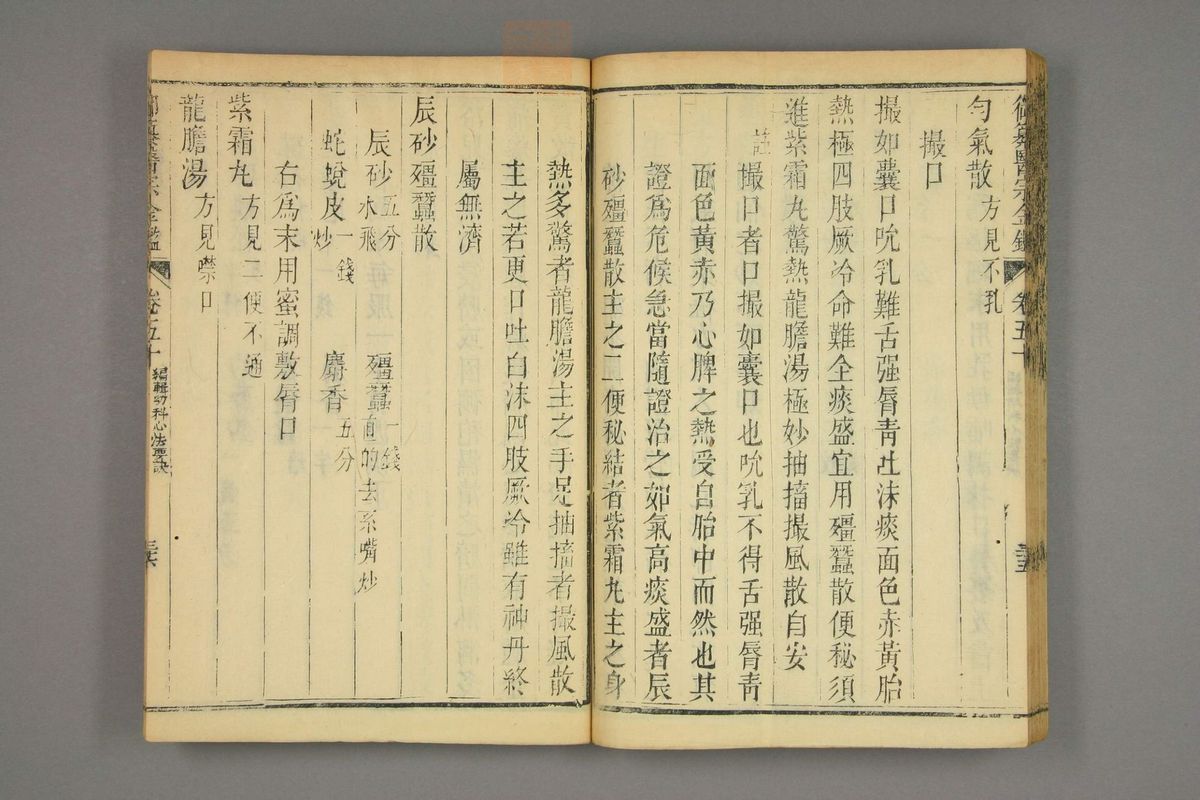 御纂醫宗金鑑 卷五十 三五
勻氣散方見不乳
撮口
撮如囊口吮乳難舌强脣靑吐沫痰面色赤黃胎
熱極四肢厥冷命難全痰盛宜用殭蠶散便秘須
進紫霜丸驚熱龍膽湯極妙抽搐撮風散自安
註撮口者口撮如囊口也吮乳不得舌强脣靑
面色黃赤乃心脾之熱受自胎中而然也其
證爲危候急當隨證治之如氣高痰盛者辰
砂殭蠶散主之二便秘結者紫霜丸主之身
熱多驚者龍膽湯主之手足抽搐者撮風散
主之若更口吐白沫四肢厥冷雖有神丹終
屬無濟
辰砂殭蠶散
辰砂五分水飛 殭蠶一錢直的去系嘴炒
蛇蛻皮一錢炒 麝香五分
右爲末用蜜調敷脣口
紫霜丸方見二便不通
龍膽湯方見噤口
御纂醫宗金鑑 卷五十 編輯幼科心法要訣 三六